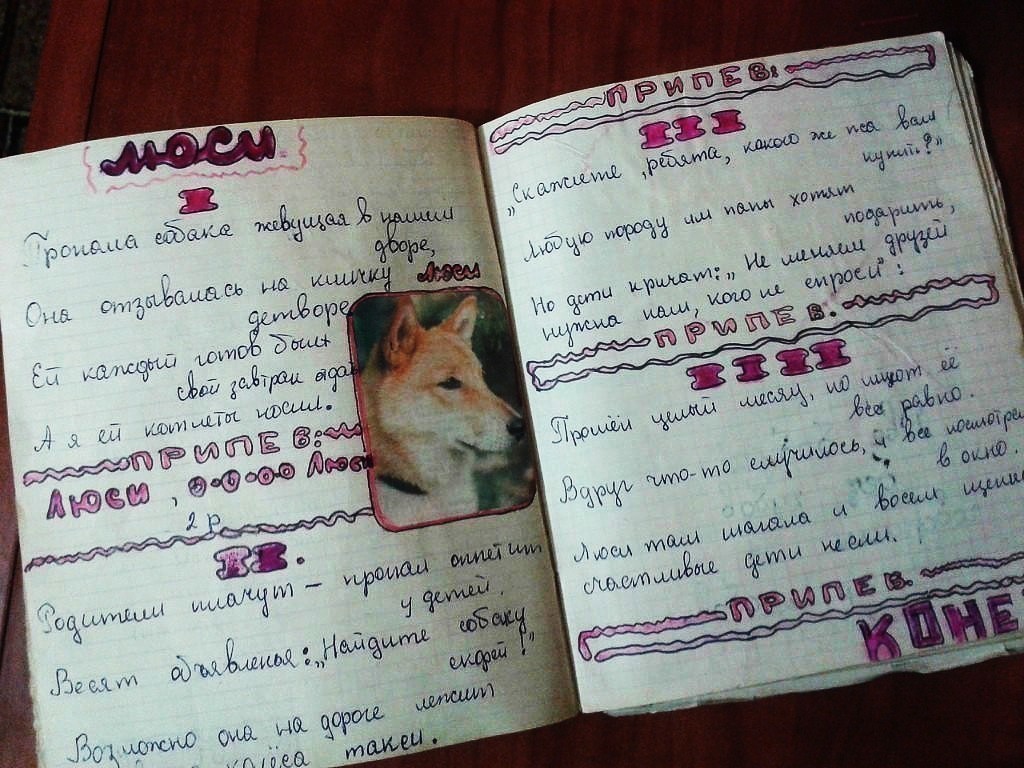 ЛЮСИ
I
Пропала собака жевущая в нашем
дворе,
Она отзывалась на кличку Люси
детворе
Ей каждый готов был
свой завтрак отда
А я ей котлеты носил.
ПРИПЕВ:
Люси, о-о-о-о Люси
2 р
II.
Родители плачут – пропал аппетит
у детей.
Весят объявленья: „Найдите собаку
скорей!"
Возможно она на дороге лежит
колёса такси.
ПРИПЕВ:
III
„Скажите, ребята, какого же пса вам
купить?"
Любую породу им папы хотят
подарить,
Но дети кричат: „Не меняем друзей
нужна нам, кого не спроси":
ПРИПЕВ:
IIII
Прошёл целый месяц, но ищют её
всё равно.
Вдруг что-то случилось, и все посмотре
в окно.
Люси там шагала и восем щенко
счастливые дети несли.
ПРИПЕВ.
КОНЕ